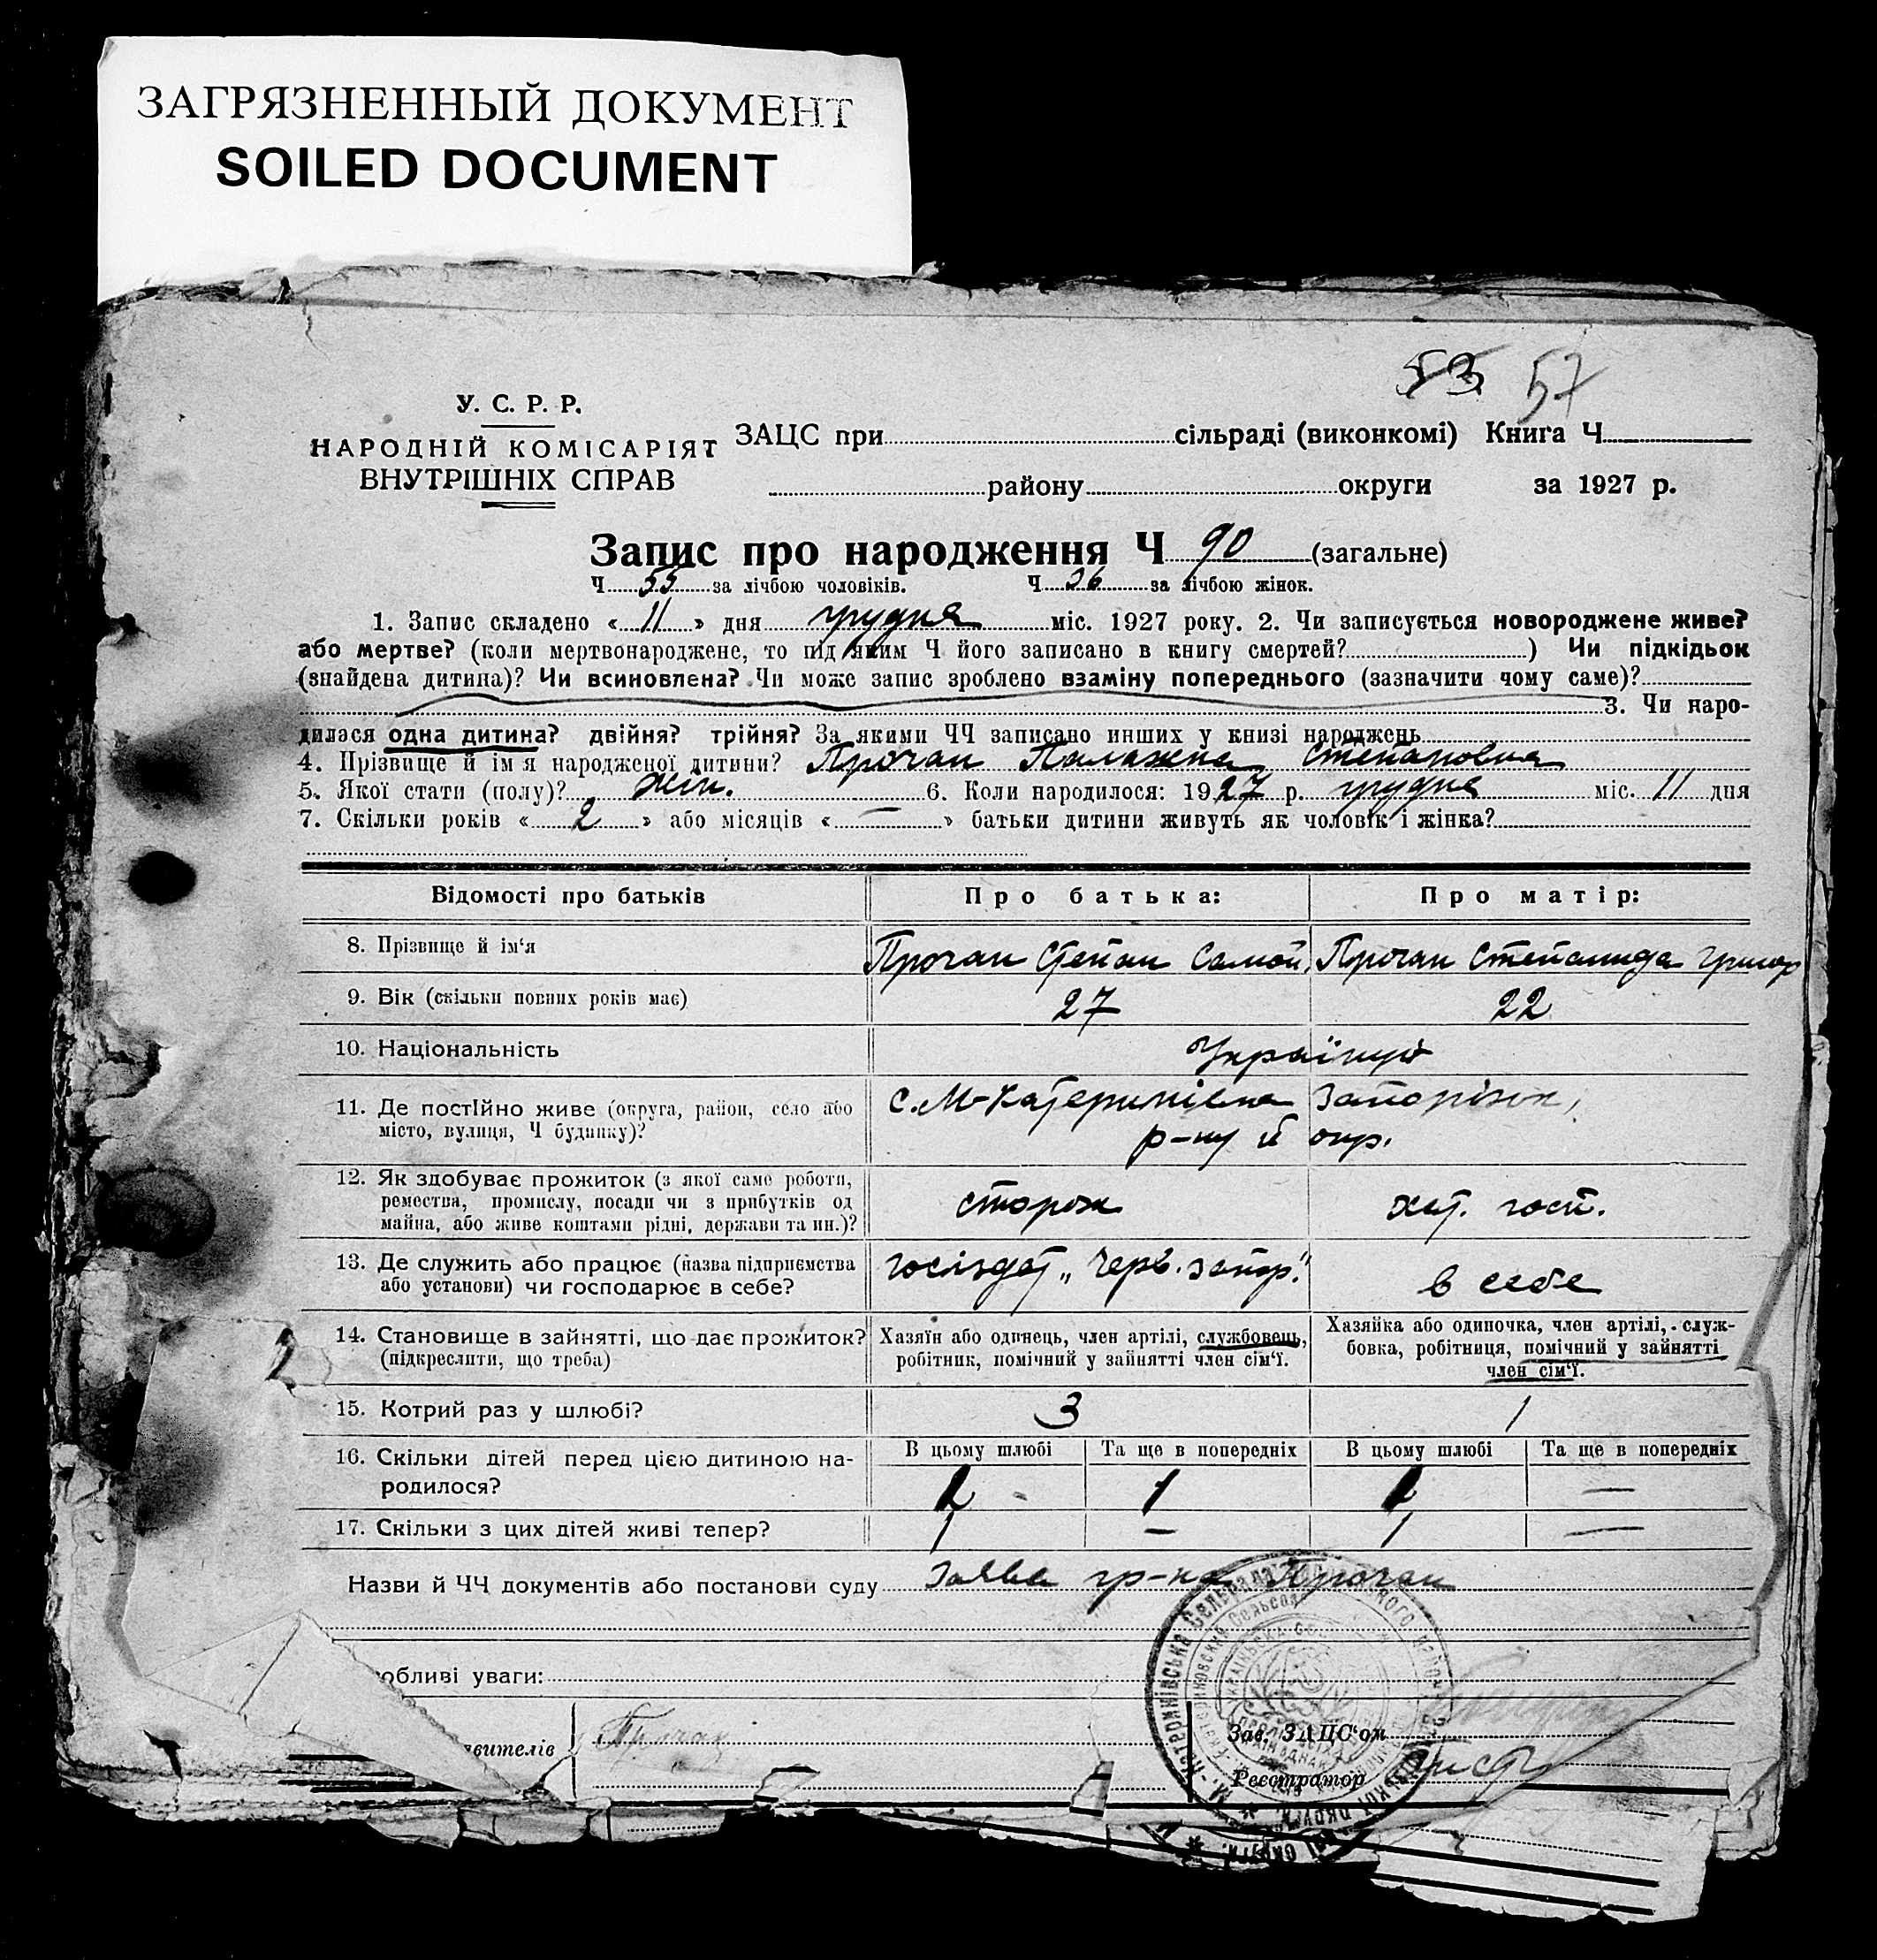 ЗАГРЯЗНЕННЫЙ ДОКУМЕНТ
SOILED DOCUMENT
53 57
У. С. Р. Р.
НАРОДНІЙ КОМІСАРІЯТ
ВНУТРІШНІХ СПРАВ
ЗАЦС при сільраді (виконкомі) Книга Ч
району округи за 1927 р.
Запис про народження Ч 90 (загальне)
Ч 55 за лічбою чоловіків. Ч 36 за лічбою жінок.
1. Запис складено « 11 » дня грудня міс. 1927 року. 2. Чи записується новороджене живе?
або мертве? (коли мертвонароджене, то під яким Ч його записано в книгу смертей? ) Чи підкідьок
(знайдена дитина)? Чи всиновлена? Чи може запис зроблено взаміну попереднього (зазначити чому саме)?
3. Чи наро-
дилася одна дитина? двійня? трійня? За якими ЧЧ записано инших у книзі народжень
4. Прізвище й ім'я народженої дитини? Прочан Палажка Степановна
5. Якої стати (полу)? жін. 6. Коли народилося: 1927 р. грудня міс. 11 дня
7. Скільки років « 2 » або місяців « — » батьки дитини живуть як чоловік і жінка?
Відомості про батьків Про батька: Про матір:
8. Прізвище й ім'я Прочан Степан Самой. Прочан Степанида Григор
9. Вік (скільки повних років має) 27 22
10. Національність Українці
11. Де постійно живе (округа, район, село або с. М-Катеринівка Запорізьк.
місто, вулиця, Ч будинку)? р-ну й окр.
12. Як здобуває прожиток (з якої саме роботи,
ремества, промислу, посади чи з прибутків од сторож хат. госп.
майна, або живе коштами рідні, держави та ин.)?
13. Де служить або працює (назва підприємства „Черв. запор."
або установи) чи господарює в себе? в себе
14. Становище в зайнятті, що дає прожиток? Хазяїн або одинець, член артілі, службовець, Хазяйка або одиночка, член артілі, служ-
(підкреслити, що треба) робітник, помічний у зайнятті член сім'ї. бовка, робітниця, помічний у зайнятті
член сім'ї.
15. Котрий раз у шлюбі? 3 1
В цьому шлюбі Та ще в попередніх В цьому шлюбі Та ще в попередніх
16. Скільки дітей перед цією дитиною на-
родилося? 1 —
17. Скільки з цих дітей живі тепер? 1 — 1 —
Назви й ЧЧ документів або постанови суду Заява гр-на Прочан
обливі уваги:
вителів Прочан
Зав. ЗАЦС'ом
Реєстратор